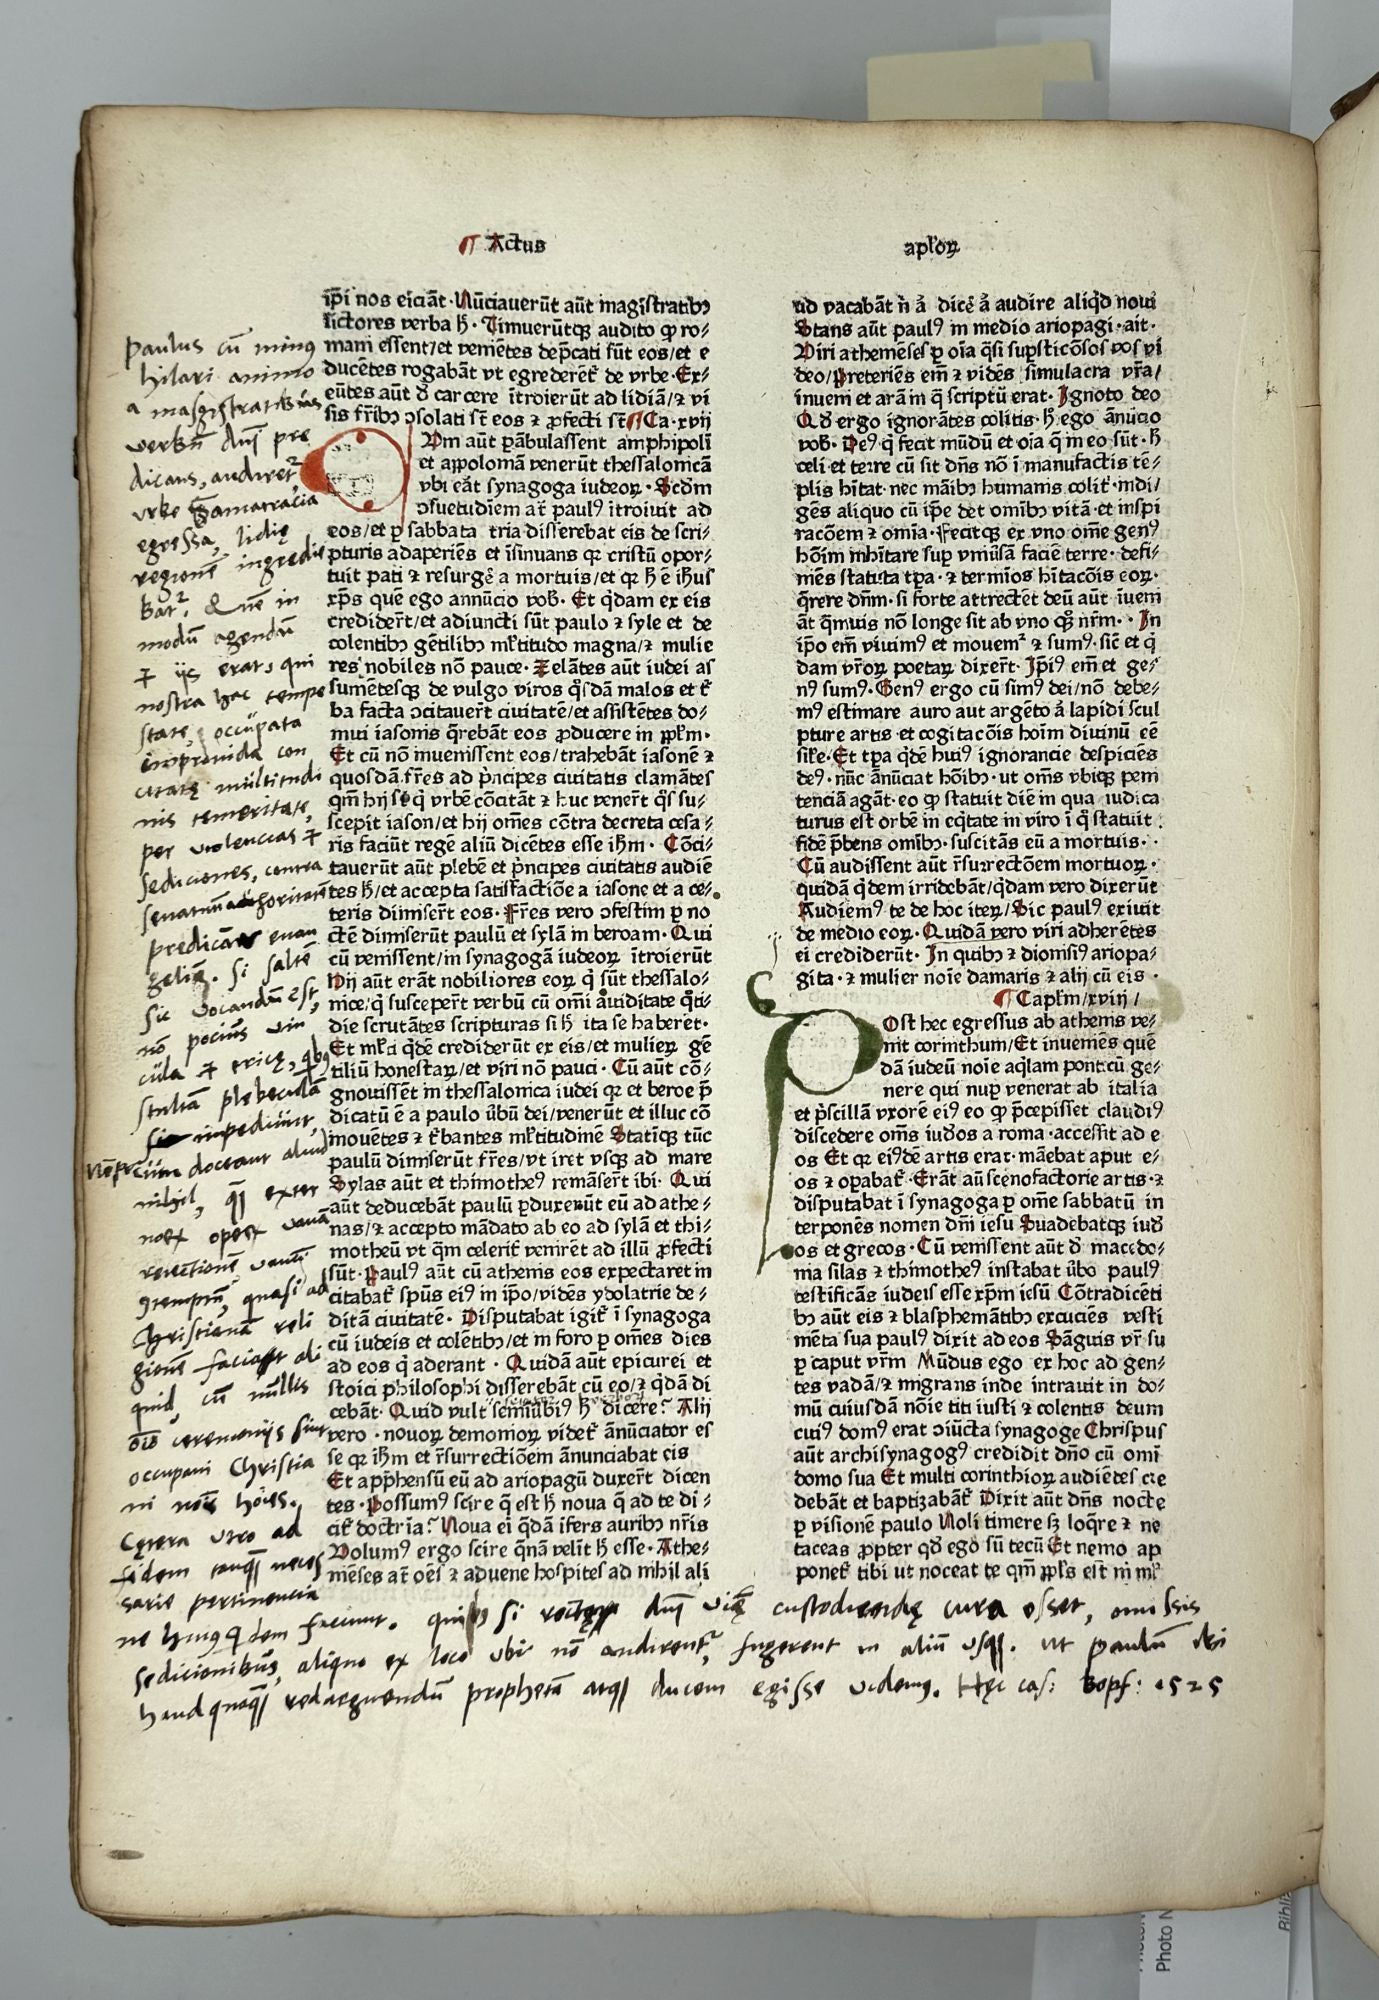 ¶ Actus
aploꝝ
ip̄i nos eiciāt · Nūciauerūt aūt magistratibꝰ
lictores verba h̄ · Timuerūtqꝫ audito ꝙ ro⸗
mani essent/et veniētes dep̄cati sūt eos/et e
ducētes rogabāt vt egrederēt᷑ de vrbe · Ex⸗
eūtes aūt d̓ carcere ītroierūt ad lidiā/⁊ vi
sis fr̄ibꝰ ꝯsolati st̄ eos ⁊ ꝓfecti st̄ ¶ Ca · xvij
Vm aūt ꝑābulassent amphipolī
et appolomā venerūt thessalonicā
vbi eāt synagoga iudeoꝝ · Scd̄m
ꝯsuetudiēm at̄ paulꝰ ītroiuit ad
eos/et ꝑ sabbata tria disserebat eis de scri⸗
pturis adaperiēs et īsinuans qꝛ cristū opor⸗
tuit pati ⁊ resurgē a mortuis/et qꝛ h̄ ē ih̄us
xp̄s quē ego annūcio vob̄ · Et q̄dam ex eis
credidert̄/et adiuncti sūt paulo ⁊ syle et de
colentibꝰ gētilibꝰ ml̄titudo magna/⁊ mulie
res nobiles nō pauce · Zelātes aūt iudei as
sumētesqꝫ de vulgo viros q̄sdā malos et t᷑
ba facta ꝯcitauert̄ ciuitatē/et assistētes do⸗
mui iasonis q̄rebāt eos ꝓducere in ppl̄m ·
Et cū nō inuenissent eos/trahebāt iasonē ⁊
quosdā fr̄es ad p̄ncipes ciuitatis clamātes
qm̄ hij sūt q̄ vrbē cōcitāt ⁊ huc venert̄ q̄s su⸗
scepit iason/et hij om̄es cōtra decreta cesa⸗
ris faciūt regē aliū dicētes esse ih̄m · Cōci⸗
tauerūt aūt plebē et p̄ncipes ciuitatis audiē
tes h̄/et accepta satisfactiōe a iasone et a ce⸗
teris dimisert̄ eos · Fr̄es vero ꝯfestim ꝑ no
ctē dimiserūt paulū et sylā in beroam · Qui
cū venissent/in synagogā iudeoꝝ ītroierūt
Hij aūt erāt nobiliores eoꝝ q̄ sūt thessalo⸗
nice/q̄ susceperт̄ verbū cū om̄i auiditate q̄ti⸗
die scrutātes scripturas si h̄ ita se haberēt ·
Et ml̄ti q̄dē crediderūt ex eis/et mulieꝝ gē
tiliū honestaꝝ/et viri nō pauci · Cū aūt cō⸗
gnouissēt in thessalonica iudei qꝛ et beroe p̄
dicatū ē a paulo v̄bū dei/venerūt et illuc cō
mouētes ⁊ t᷑bantes ml̄titudinē Statīqꝫ tūc
paulū dimiserūt fr̄es/vt iret vsqꝫ ad mare
Sylas aūt et thimotheꝰ remāsert̄ ibi · Qui
aūt deducebāt paulū ꝑduxerūt eū ad athe⸗
nas/⁊ accepto mādato ab eo ad sylā et thi⸗
motheū vt q̄m celerit᷑ venirēt ad illū ꝓfecti
sūt · Paulꝰ aūt cū athenis eos expectaret in
citabat᷑ spūs eiꝰ in ip̄o/vidēs ydolatrie de⸗
ditā ciuitatē · Disputabat igit᷑ ī synagoga
cū iudeis et colētibꝰ/et in foro ꝑ om̄es dies
ad eos q̄ aderant · Quidā aūt epicurei et
stoici philosophi disserebāt cū eo/⁊ q̄dā di
cebāt · Quid vult semīv̄biꝰ h̄ dicere? Alij
vero · nouoꝝ demonioꝝ videt᷑ ānūciator es
se qꝛ ih̄m et r̄surrectiōem ānunciabat eis
Et app̄hensū eū ad ariopagū duxert̄ dicen
tes · Possumꝰ scire q̄ est h̄ noua q̄ ad te di⸗
cit᷑ doctrīa? Noua ei q̄dā īfers auribꝰ nr̄is
Volumꝰ ergo scire q̄nā velīt h̄ esse · Athe⸗
niēses at̄ oēs ⁊ aduene hospites ad nihil ali
ud vacabāt n̄ ȧ dicē ȧ audire aliq̄d noui
Stans aūt paulꝰ in medio ariopagi · ait ·
Viri atheniēses ꝑ oīa q̄si suꝑsticōsos vos vi
deo/Preteriēs em̄ ⁊ vidēs simulacra vr̄a/
inueni et arā in q̄ scriptū erat · Ignoto deo
Qd̓ ergo ignorātes colitis · h̄ ego ānūcio
vob̄ · Deꝰ q̄ fecit mūdū et oīa q̄ in eo sūt · h̄
celi et terre cū sit dn̄s nō ī manufactis tē⸗
plis hītat · nec māibꝰ humanis colit᷑ · indi⸗
gēs aliquo cū ip̄e det omībꝰ vitā · et inspi
racōem ⁊ omīa · Fecitqꝫ ex vno om̄e genꝰ
hoīm inhītare suꝑ vniūsā faciē terre · defi⸗
niēs statuta tꝑa · ⁊ termīos hītacōis eoꝝ ·
q̄rere dn̄m · si forte attrectēt deū aūt īueni
āt q̄muis nō longe sit ab vno qꝫ nr̄m · In
ip̄o em̄ viuimꝰ et mouem᷑ ⁊ sumꝰ · sic̄ et q̄
dam vr̄oꝝ poetaꝝ dixert̄ · Ip̄iꝰ em̄ et ge⸗
nꝰ sumꝰ · Genꝰ ergo cū simꝰ dei/nō debe⸗
mꝰ estimare auro aut argēto ȧ lapidi scul
pture artis et cogitacōis hoīm diuinū eē
sil̄e · Et tꝑa q̄dē huiꝰ ignorancie despiciēs
deꝰ · nūc ānūciat hoībꝰ · ut om̄s vbiqꝫ peni
tenciā agāt · eo ꝙ statuit diē in qua iudica
turus est orbē in eq̄tate in viro ī q̄ statuit
fidē p̄bens omībꝰ · suscitās eū a mortuis ·
Cū audissent aūt r̄surrectōem mortuoꝝ ·
quidā q̄dem irridebāt/q̄dam vero dixerūt
Audiemꝰ te de hoc iteꝝ/Sic paulꝰ exiuit
de medio eoꝝ · Quidā vero viri adherētes
ei crediderūt · In quibꝰ ⁊ dionisiꝰ ariopa⸗
gita · ⁊ mulier noīe damaris ⁊ alij cū eis ·
¶ Capl̄m/xviij/
Post hec egressus ab athenis ve⸗
nit corinthum/Et inueniēs quē
dā iudeū noīe aq̄lam ponticū ge⸗
nere qui nuꝑ venerat ab italia
et p̄scillā vxorē eiꝰ eo ꝙ p̄cepisset claudiꝰ
discedere om̄s iud̓os a roma · accessit ad e
os Et qꝛ eiꝰdē artis erat · māebat aput e⸗
os ⁊ oꝑabat᷑ · Erāt aū scenofactorie artis · ⁊
disputabat ī synagoga ꝑ om̄e sabbatū in
terponēs nomen dn̄i iesu Suadebatqꝫ iud̓
os et grecos · Cū venissent aūt d̓ macedo⸗
nia silas ⁊ thimotheꝰ instabat v̄bo paulꝰ
testificās iudeis esse xp̄m iesū Cōtradicēti
bꝰ aūt eis ⁊ blasphemātibꝰ excuciēs vesti
mēta sua paulꝰ dixit ad eos Sāguis vr̄ su
ꝑ caput vr̄m Mūdus ego ex hoc ad gen⸗
tes vadā/⁊ migrans inde intrauit in do⸗
mū cuiusdā noīe titi iusti ⁊ colentis deum
cuiꝰ domꝰ erat ꝯiūcta synagoge Chrispus
aūt archisynagogꝰ credidit dn̄o cū omī
domo sua Et multi corinthioꝝ audiētes cre
debāt et baptizabāt᷑ Dixit aūt dn̄s nocte
ꝑ visionē paulo Noli timere sꝫ loq̄re ⁊ ne
taceas ꝓpter qd̓ ego sū tecū Et nemo ap
ponet᷑ tibi ut noceat te qm̄ ppl̄s est m̄ ml̄
Paulus cū minus
hilari animo
a magistratibus
verbū dn̄i pre
dicans, audiret᷑
vrbe
egressa, lidię
regionē ingredie
bat᷑. & nē in
modū agendū
iis erat, qui
nostra hac tempe
state, occupata
improuida con
citatę multitudi
nis temeritate,
per violencias
sediciones, contra
senatuū authoritatē
predicāt euan
geliū. Si saltē
sic vocandū est,
nō pocius vin
cula ericę, qbꝰ
stultā plebeculā
impediunt,
Cum doceant aliud
nihil, qꝫ exter
noꝝ opeꝝ vanā
reiectionē, vanū
ꝯtemptū, quasi ad
Christianā reli
gionē faciat ali
quid, cū nullis
oīo ceremoniis sint
occupati Christia
ni hoīes.
Cętera vero ad
fidem tanqꝫ neces
sarie pertinencia
ne hinc qdem faciunt. quibus si dn̄i vię custodiendę cura esset, omissis
sedicionibus, aliquo ex loco vbi nō audirent᷑, fugerent in aliū vsqꝫ. ut Paulū ibi
haudquaqꝫ redarguendū prophetā atqꝫ ducem egisse videmꝰ. Hęc cas: Bopf: 1525
Photo N